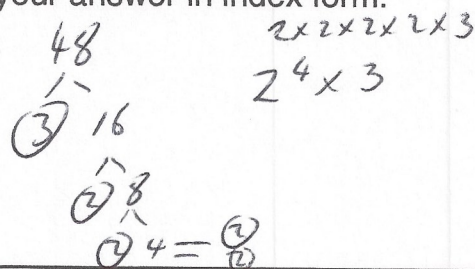 your answer in index form.
48
2x2x2x2x3
2⁴ x 3
3 16
2 8
2 4 = 2
2